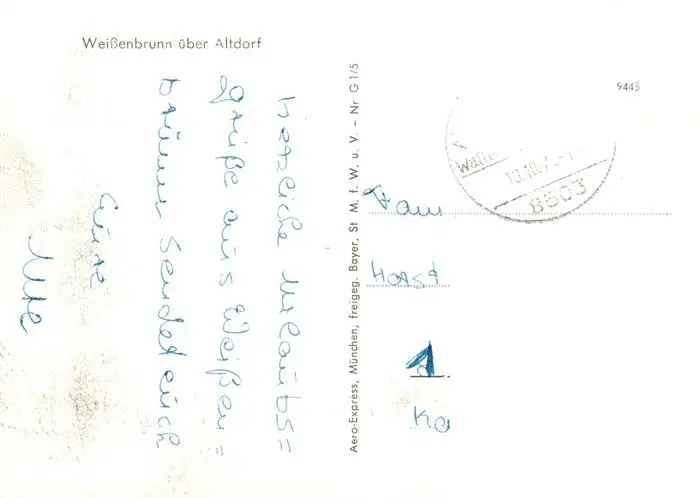 Weißenbrunn über Altdorf
herzliche Urlaubs=
grüße aus Weißen=
brunn sendet euch
eure
Ute
Aero-Express, München, freigeg. Bayer, St M. f. W. u. V. – Nr G 1/5
9445
8503
Fam
Horst
1
Ka